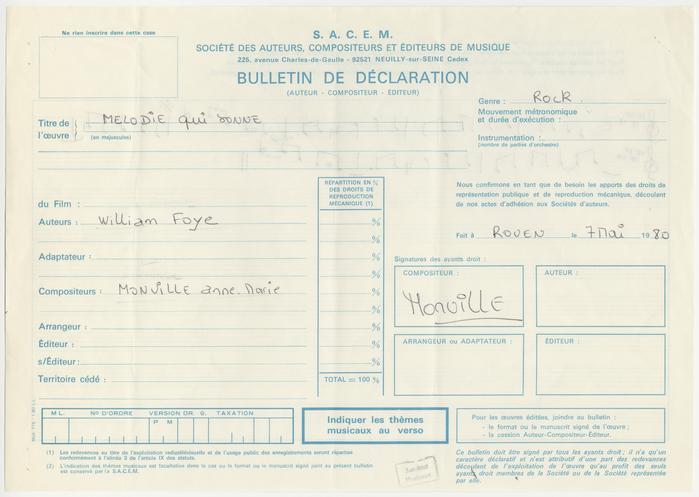 Ne rien inscrire dans cette case
S. A. C. E. M.
SOCIÉTÉ DES AUTEURS, COMPOSITEURS ET ÉDITEURS DE MUSIQUE
225, avenue Charles-de-Gaulle - 92521 NEUILLY-sur-SEINE Cadex
BULLETIN DE DÉCLARATION
(AUTEUR - COMPOSITEUR - ÉDITEUR)
Genre : ROCK
Mouvement métronomique
et durée d'exécution :
Instrumentation :
(nombre de parties d'orchestre)
Titre de l'œuvre
(en majuscules)
MELODIE qui sonne
RÉPARTITION EN %
DES DROITS DE
REPRODUCTION
MÉCANIQUE (1)
Nous confirmons en tant que de besoin les apports des droits de
représentation publique et de reproduction mécanique, découlant
de nos actes d'adhésion aux Sociétés d'auteurs.
Fait à ROUEN le 7 Mai 1980
du Film :
Auteurs : William Foye %
%
Adaptateur : %
%
Compositeurs : MONVILLE anne-Marie %
%
Arrangeur : %
Éditeur : %
s/Éditeur : %
Territoire cédé : TOTAL = 100 %
Signatures des ayants droit :
COMPOSITEUR :
Monville
AUTEUR :
ARRANGEUR ou ADAPTATEUR :
ÉDITEUR :
M L. N° D'ORDRE VERSION DR. G. TAXATION
P M
Indiquer les thèmes
musicaux au verso
Pour les œuvres éditées, joindre au bulletin :
- le format ou le manuscrit signé de l'œuvre ;
- la cession Auteur-Compositeur-Éditeur.
(1) Les redevances au titre de l'exploitation radiotélévisuelle et de l'usage public des enregistrements seront réparties
conformément à l'alinéa 3 de l'article IX des statuts.
(2) L'indication des thèmes musicaux est facultative dans le cas où le format ou le manuscrit signé joint au présent bulletin
est conservé par la S.A.C.E.M.
Ce bulletin doit être signé par tous les ayants droit ; il n'a qu'un
caractère déclaratif et n'est attributif d'une part des redevances
découlant de l'exploitation de l'œuvre qu'au profit des seuls
ayants droit membres de la Société ou de la Société représentée
par elle.